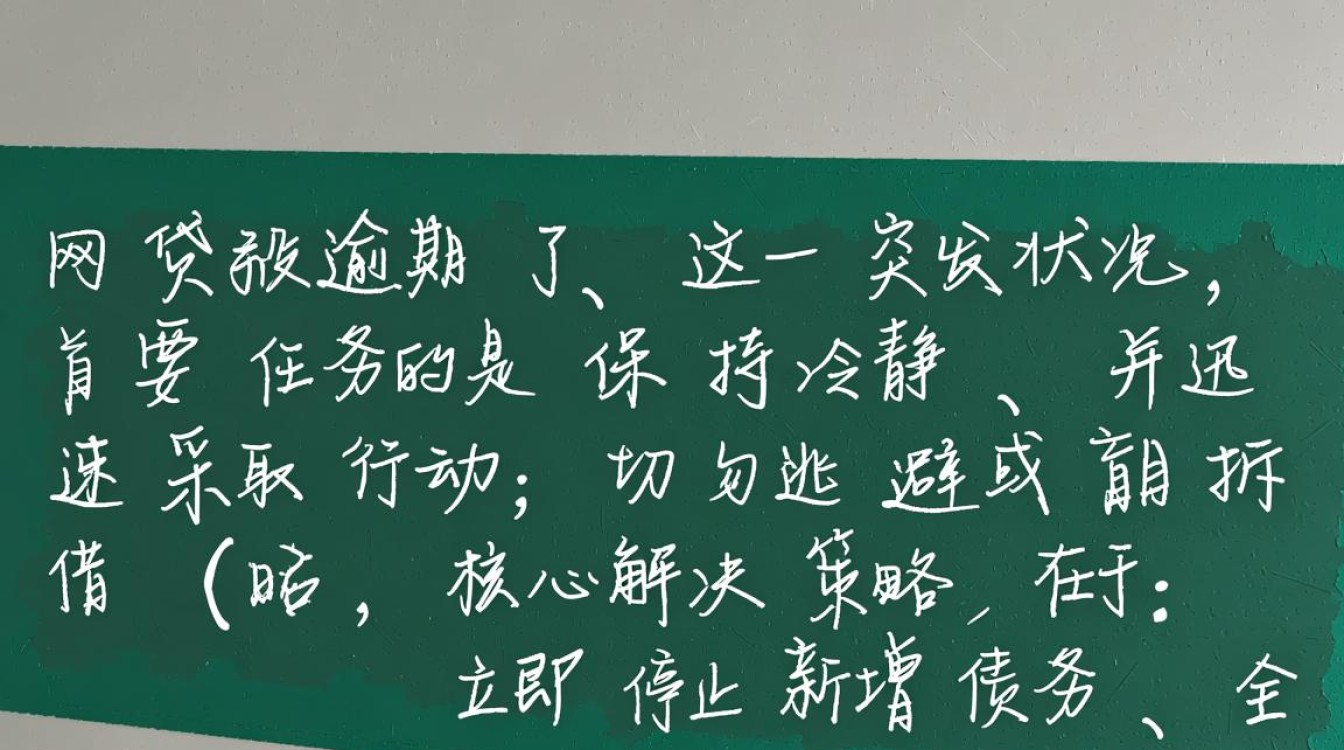 网贷逾期了、这一突发状况，
首要任务的是保持冷静、并迅
速采取行动；切勿逃避或盲目拆
借（略，核心解决策略，在于：
立即停止新增债务、全